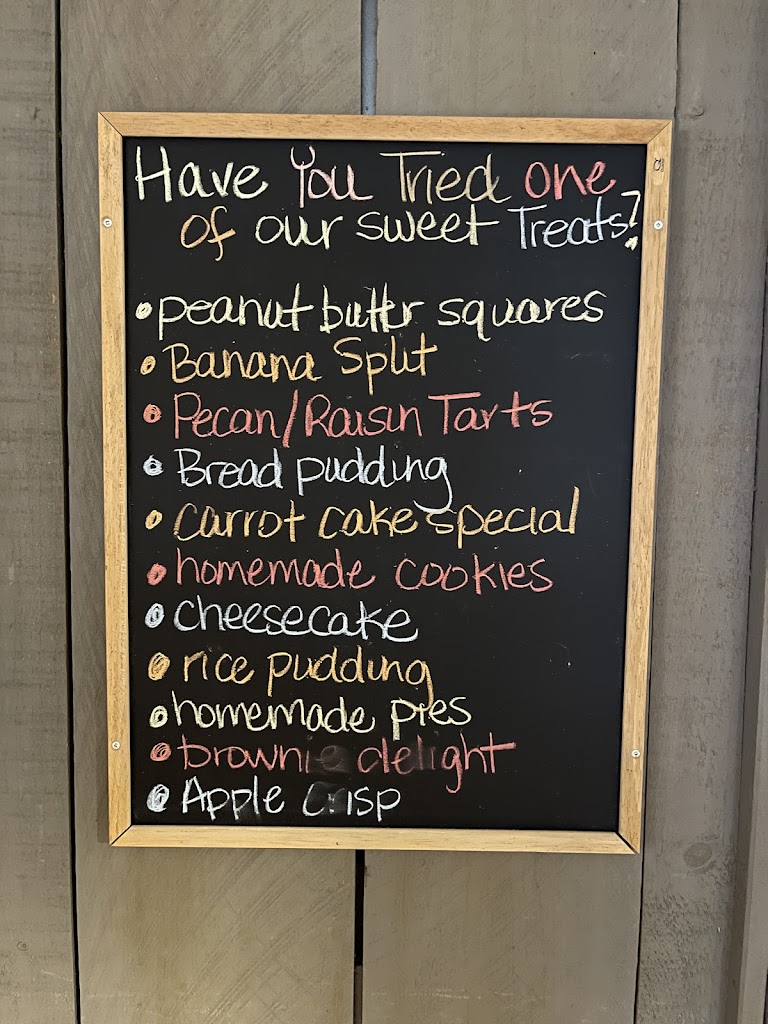 Have You Tried one
of our sweet Treats?
• peanut butter squares
• Banana Split
• Pecan/Raisin Tarts
• Bread pudding
• carrot cake special
• homemade cookies
• cheesecake
• rice pudding
• homemade pies
• brownie delight
• Apple Crisp